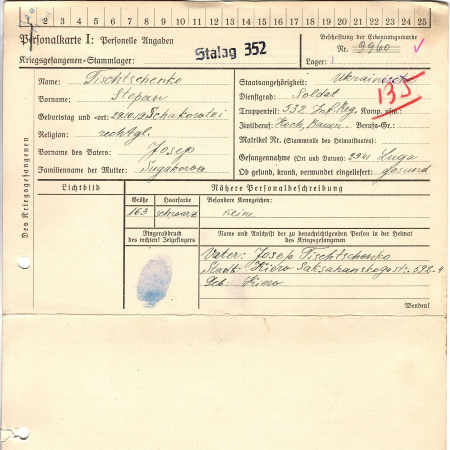 1 2 3 4 5 6 7 8 9 10 11 12 13 14 15 16 17 18 19 20 21 22 23 24 25
Personalkarte I: Personelle Angaben
Kriegsgefangenen-Stammlager: Stalag 352
Beschriftung der Erkennungsmarke
Nr. 9960
Lager:
Des Kriegsgefangenen
Name: Tischtschenko
Vorname: Stepan
Geburtstag und -ort:
Religion: rechtgl.
Vorname des Vaters: Josep
Familienname der Mutter:
Staatsangehörigkeit: Ukrainische
Dienstgrad: Soldat
Truppenteil: 532 Inf. Reg. Komp. usw.:
Zivilberuf: Koch, Berufs-Gr.:
Matrikel Nr. (Stammrolle des Heimatstaates):
Gefangennahme (Ort und Datum): Luga
Ob gesund, krank, verwundet eingeliefert: gesund
135
Lichtbild
Nähere Personalbeschreibung
Größe Haarfarbe Besondere Kennzeichen:
163 schwarz Keine
Fingerabdruck
des rechten! Zeigefingers
Name und Anschrift der zu benachrichtigenden Person in der Heimat
des Kriegsgefangenen
Vater: Josep Tischtschenko
Stadt: Kiew Saksahanskogostr.
Geb: Kiew
Wenden!